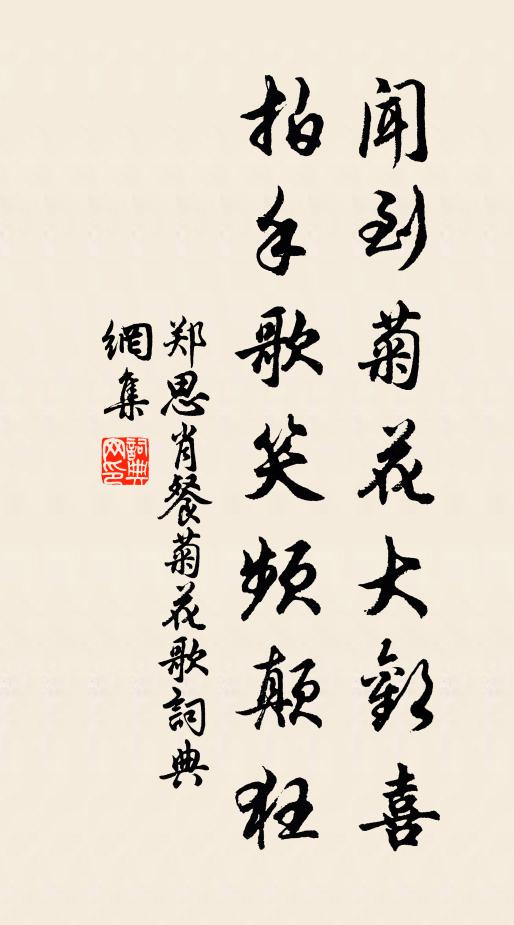 闻到菊花大歡喜
拍手歌笑频颠狂
郑思肖餐菊花歌詞典
網集
詞典网印